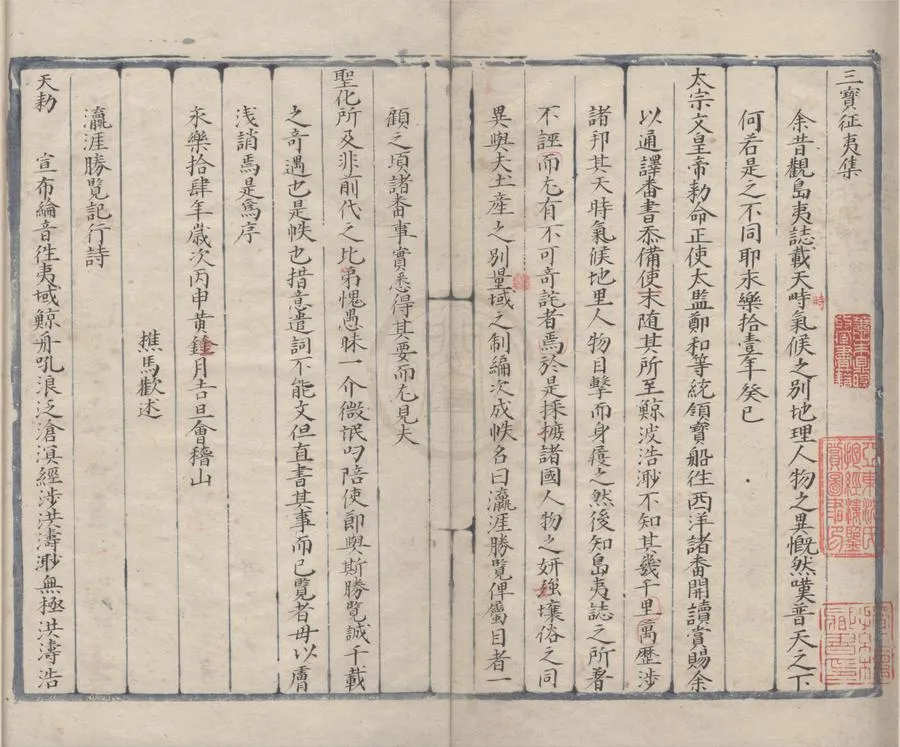 三寶征夷集
余昔觀島夷誌載天時氣候之別地理人物之異慨然嘆普天之下
時
何若是之不同耶永樂拾壹年癸巳
太宗文皇帝勑命正使太監鄭和等統領寶船徃西洋諸番開讀賞賜余
以通譯番書忝備使末隨其所至鯨波浩渺不知其幾千里萬歷涉
諸邦其天時氣候地里人物目擊而身履之然後知島夷誌之所著
不誣而尤有不可奇詫者焉於是採摭諸國人物之妍強壤俗之同
異與夫土產之別畺域之制編次成帙名曰瀛涯勝覽俾屬目者一
顧之頃諸番事實悉得其要而尤見夫
聖化所及非前代之比第愧愚昧一介微氓叨陪使節與斯勝覽誠千載
之奇遇也是帙也措意遣詞不能文但直書其事而已覽者毋以膚
浅誚焉是為序
永樂拾肆年歲次丙申黃鐘月吉旦會稽山
樵馬歡述
瀛涯勝覽記行詩
天勑 宣布綸音徃夷域鯨舟吼浪泛滄溟經涉洪濤渺無極洪濤浩